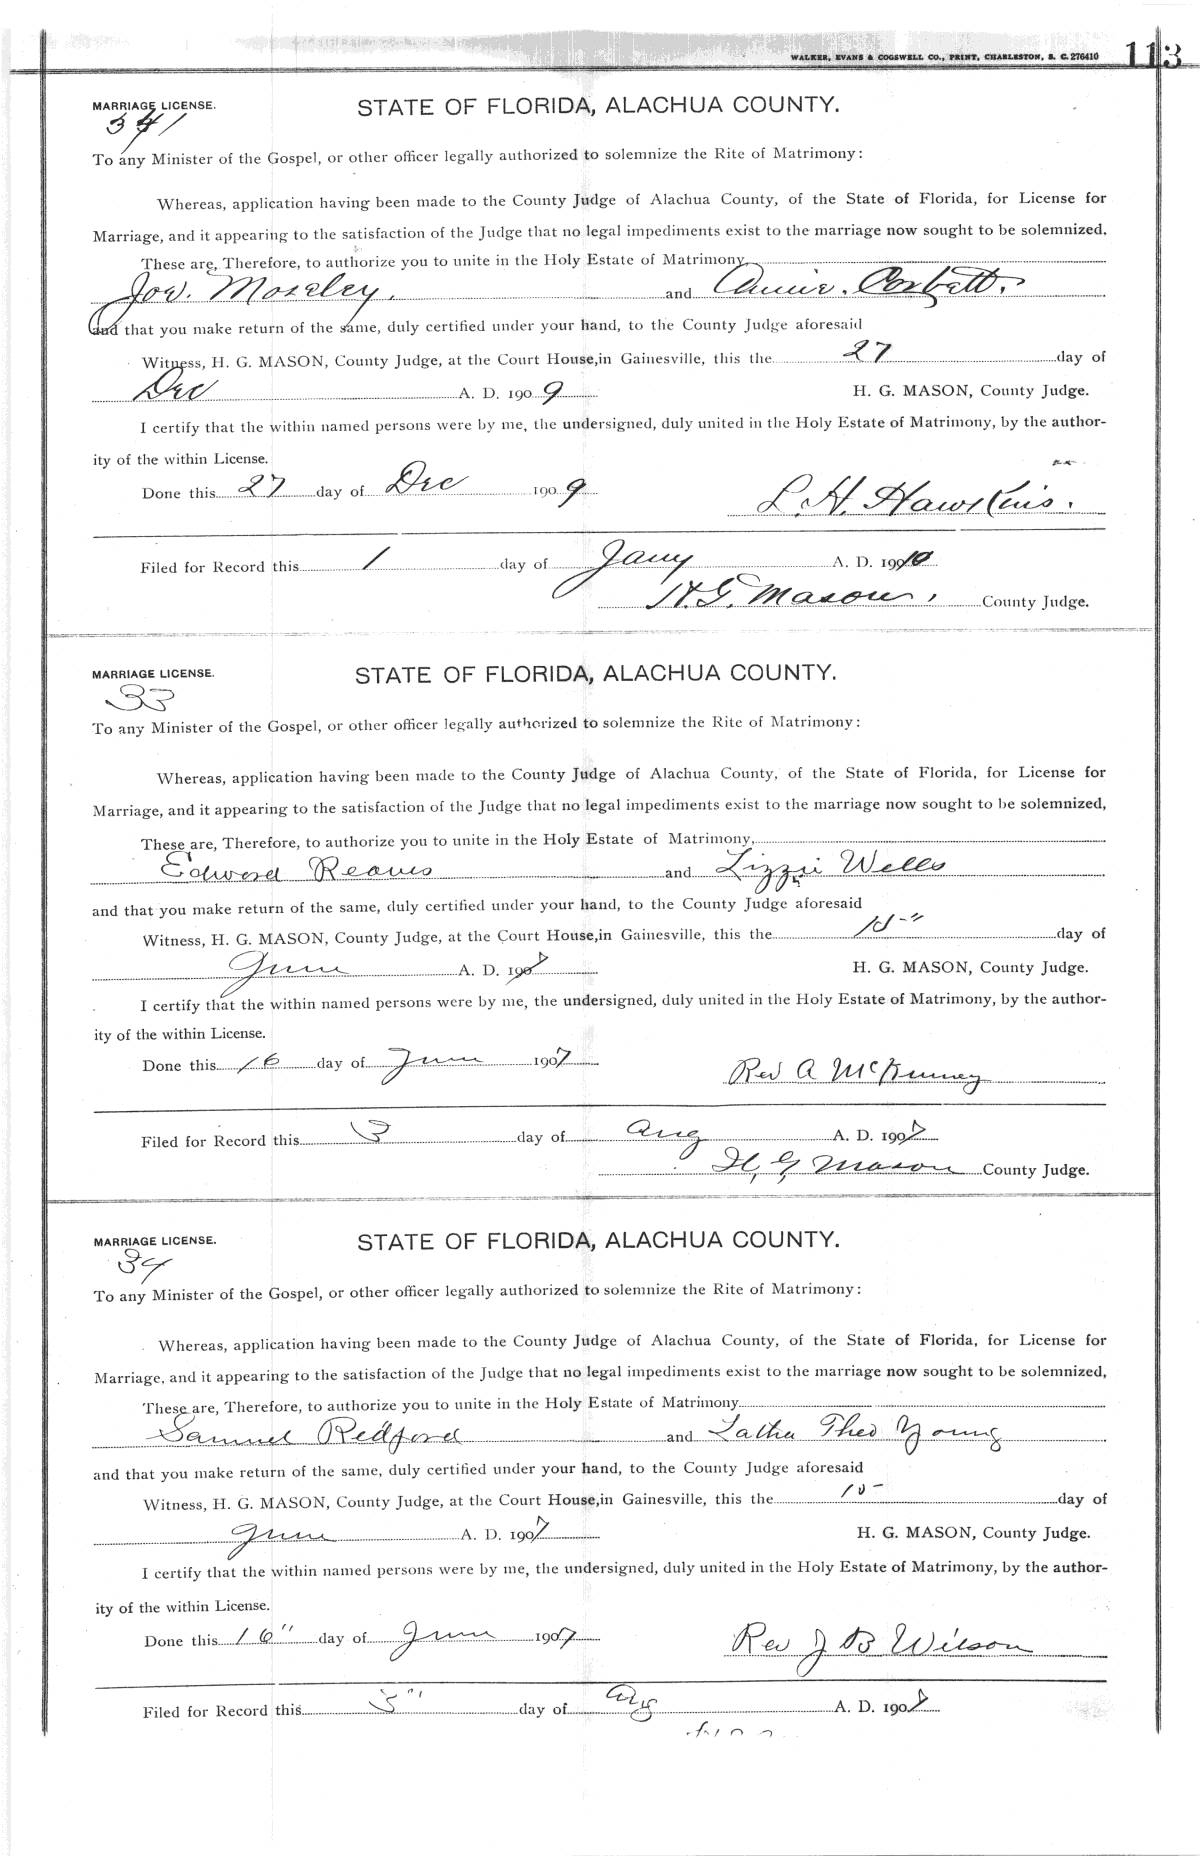 WALKER, EVANS & COGSWELL CO., PRINT, CHARLESTON, S. C. 276410 113
MARRIAGE LICENSE. STATE OF FLORIDA, ALACHUA COUNTY.
341
To any Minister of the Gospel, or other officer legally authorized to solemnize the Rite of Matrimony:
Whereas, application having been made to the County Judge of Alachua County, of the State of Florida, for License for
Marriage, and it appearing to the satisfaction of the Judge that no legal impediments exist to the marriage now sought to be solemnized.
These are, Therefore, to authorize you to unite in the Holy Estate of Matrimony
Joe. Moseley. and Annie. Corbett.
and that you make return of the same, duly certified under your hand, to the County Judge aforesaid
Witness, H. G. MASON, County Judge, at the Court House, in Gainesville, this the 27 day of
Dec A. D. 1909 H. G. MASON, County Judge.
I certify that the within named persons were by me, the undersigned, duly united in the Holy Estate of Matrimony, by the author-
ity of the within License.
Done this 27 day of Dec 1909 L. H. Hawkins.
Filed for Record this 1 day of Jany A. D. 1910
H. G. Mason, County Judge.
MARRIAGE LICENSE. STATE OF FLORIDA, ALACHUA COUNTY.
33
To any Minister of the Gospel, or other officer legally authorized to solemnize the Rite of Matrimony:
Whereas, application having been made to the County Judge of Alachua County, of the State of Florida, for License for
Marriage, and it appearing to the satisfaction of the Judge that no legal impediments exist to the marriage now sought to be solemnized,
These are, Therefore, to authorize you to unite in the Holy Estate of Matrimony,
Edward Reaves and Lizzie Wells
and that you make return of the same, duly certified under your hand, to the County Judge aforesaid
Witness, H. G. MASON, County Judge, at the Court House, in Gainesville, this the day of
June A. D. 1907 H. G. MASON, County Judge.
I certify that the within named persons were by me, the undersigned, duly united in the Holy Estate of Matrimony, by the author-
ity of the within License.
Done this 16 day of June 1907 Rev A McKinney
Filed for Record this 3 day of Aug A. D. 1907
H. G. Mason County Judge.
MARRIAGE LICENSE. STATE OF FLORIDA, ALACHUA COUNTY.
34
To any Minister of the Gospel, or other officer legally authorized to solemnize the Rite of Matrimony:
Whereas, application having been made to the County Judge of Alachua County, of the State of Florida, for License for
Marriage, and it appearing to the satisfaction of the Judge that no legal impediments exist to the marriage now sought to be solemnized,
These are, Therefore, to authorize you to unite in the Holy Estate of Matrimony
Samuel Redford and Theo Young
and that you make return of the same, duly certified under your hand, to the County Judge aforesaid
Witness, H. G. MASON, County Judge, at the Court House, in Gainesville, this the day of
June A. D. 1907 H. G. MASON, County Judge.
I certify that the within named persons were by me, the undersigned, duly united in the Holy Estate of Matrimony, by the author-
ity of the within License.
Done this 16" day of June 1907 Rev J B Wilson
Filed for Record this day of Aug A. D. 1907